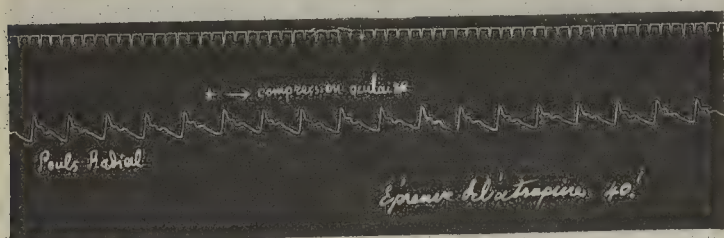 * → compression oculaire *
Pouls Radial
Épreuve de l'atropine 40'